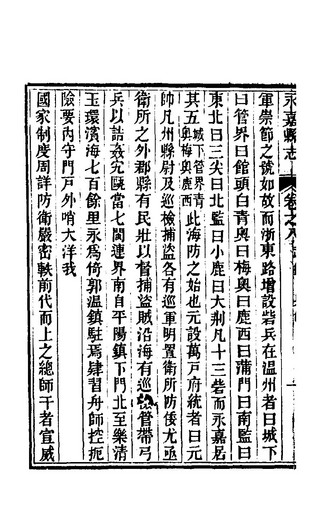 永嘉縣志 卷之八
軍崇節之號如故而浙東路增設砦兵在溫州者曰城下
曰管界曰館頭曰青奧曰梅奧曰鹿西曰蒲門曰南監曰
東北曰三尖曰北監曰小鹿曰大荆凡十三砦而永嘉居
其五城下管界青奧梅奧鹿西此海防之始也元設萬戸府統者曰元
帥凡州縣尉及巡檢捕盜各有巡軍明置衛所防倭尤亟
衛所之外郡縣有民壯以督捕盜賊沿海有巡管帶弓
兵以詰姦宄甌當七閩連界南自平陽鎮下門北至樂清
玉環濱海七百餘里永爲倚郭溫鎮駐焉肄習舟師控扼
險要内守門戸外哨大洋我
國家制度周詳防衛嚴密軼前代而上之總師干者宣威